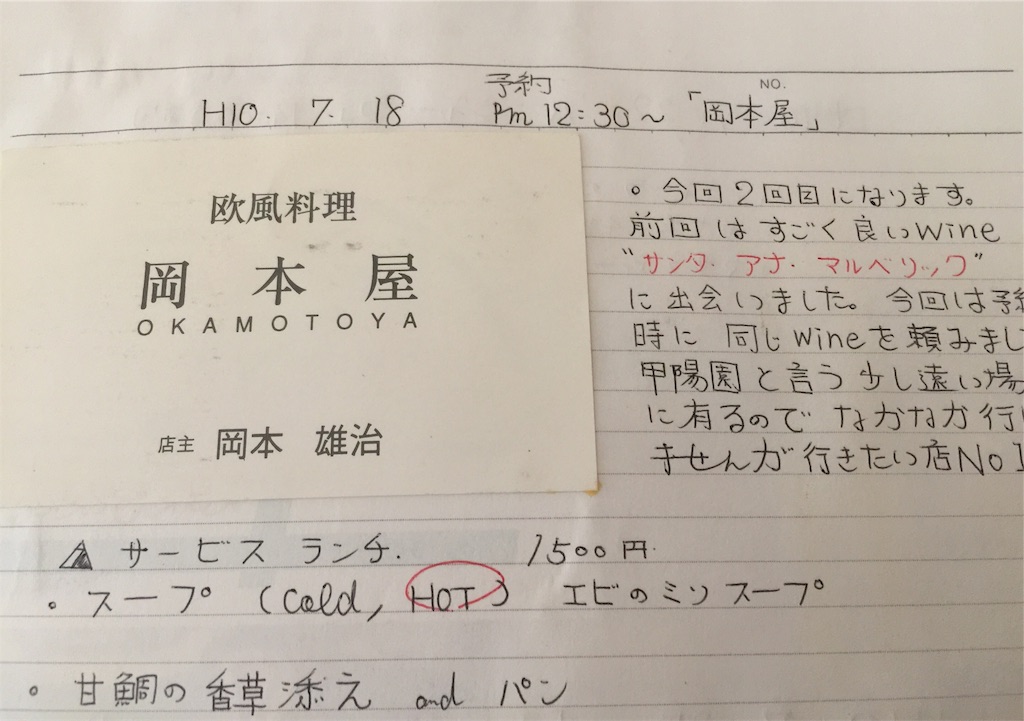 予約
NO.
H10. 7. 18 Pm 12:30～ 「岡本屋」
欧風料理
岡本屋
OKAMOTOYA
店主 岡本 雄治
。今回2回目になります。
前回はすごく良いwine
"サンタ・アナ・マルベリック"
に出会いました。今回は予約
時に同じwineを頼みまし
甲陽園と言う少し遠い場
に有るのでなかなか行け
ませんが行きたい店No1
サービスランチ. 1500円.
・スープ (Cold, HOT) エビのミソスープ
・甘鯛の香草添え and パン